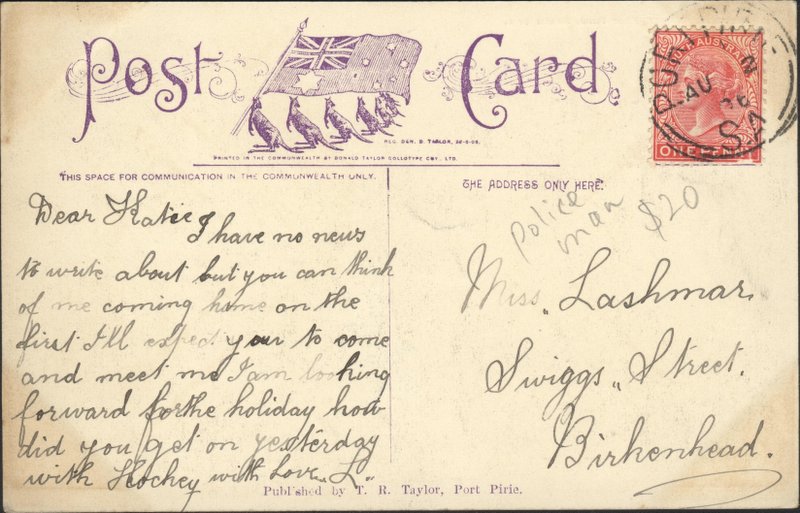 Post Card
REG. DEN. D. TAYLOR, 26-5-05.
PRINTED IN THE COMMONWEALTH BY DONALD TAYLOR COLLOTYPE COY. LTD.
THIS SPACE FOR COMMUNICATION IN THE COMMONWEALTH ONLY.
THE ADDRESS ONLY HERE.
AUSTRALIA
AU
SA
ONE PENNY
Dear Katie
I have no news
to write about but you can think
of me coming home on the
first I'll expect you to come
and meet me I am looking
forward for the holiday how
did you get on yesterday
with Hockey with Love L.
Police man $20
Miss, Lashmar,
Swiggs, Street.
Birkenhead.
Published by T. R. Taylor, Port Pirie.